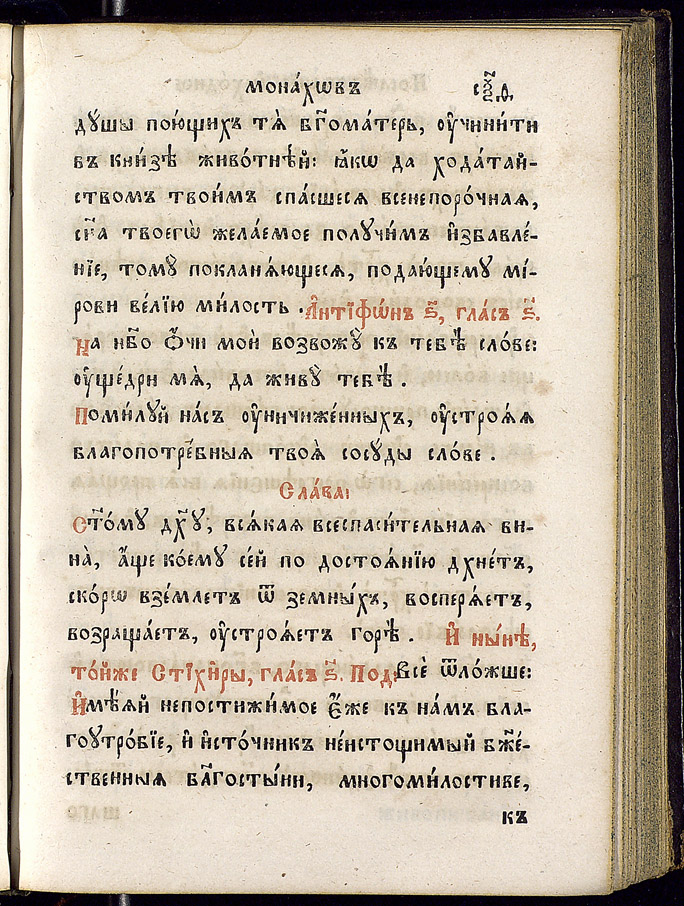 мона́хѡвъ сѯ҃д
ду́шы пою́щихъ тѧ̀ бг҃ома́терь, ᲂу҆чини́ти
въ кни́зѣ живо́тнѣй: ꙗ҆́кѡ да хода́тай-
ствомъ твои́мъ спа́сшесѧ всенепоро́чнаѧ,
сн҃а твоегѡ̀ жела́емое полу́чимъ и҆збавле́-
нїе, томꙋ̀ покланѧ́ющесѧ, подаю́щемꙋ мі́-
рови ве́лїю ми́лость . А҆нтїфѡ́нъ ѕ҃, гла́съ ѕ҃.
На нб҃о ѻ҆́чи моѝ возвожꙋ̀ къ тебѣ̀ сло́ве:
ᲂу҆ще́дри мѧ̀, да живꙋ̀ тебѣ̀ .
Поми́лꙋй на́съ ᲂу҆ничиже́нныхъ, ᲂу҆строѧ́ѧ
благопотре́бныѧ твоѧ̀ сосꙋ́ды сло́ве .
Сла́ва:
Ст҃о́мꙋ дх҃ꙋ, всѧ́каѧ всеспаси́тельнаѧ ви-
на̀, а҆́ще ко́емꙋ се́й по достоѧ́нїю дхне́тъ,
ско́рѡ взе́млетъ ѿ земны́хъ, восперѧ́етъ,
возраща́етъ, ᲂу҆строѧ́етъ горѣ̀ . И҆ ны́нѣ,
то́йже Стїхи̑ры, гла́съ ѕ҃. Под: Всѐ ѿло́жше:
И҆мѣ́ѧй непостижи́мое є҆́же къ на́мъ бла-
гоꙋтро́бїе, и҆ и҆сто́чникъ неисто́щимый бж҃е́-
ственныѧ бл҃госты́ни, многоми́лостиве,
къ